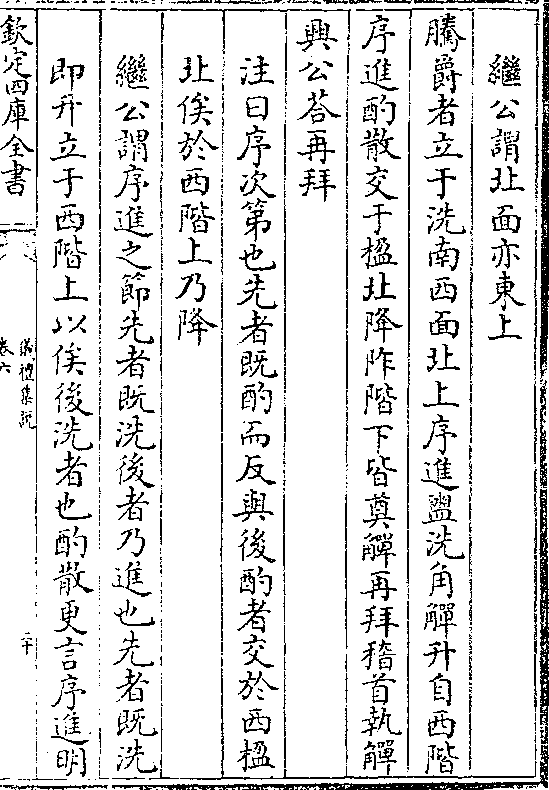 繼公謂北面亦東上
騰爵者立于洗南西面北上序進盥洗角觶升自西階
序進酌散交于楹北降阼階下皆奠觶再拜稽首執觶
興公荅再拜
注曰序次第也先者既酌而反與後酌者交於西楹
北俟於西階上乃降
繼公謂序進之節先者既洗後者乃進也先者既洗
即升立于西階上以俟後洗者也酌散更言序進明
欽定四庫全書
儀禮集說
卷六
二十